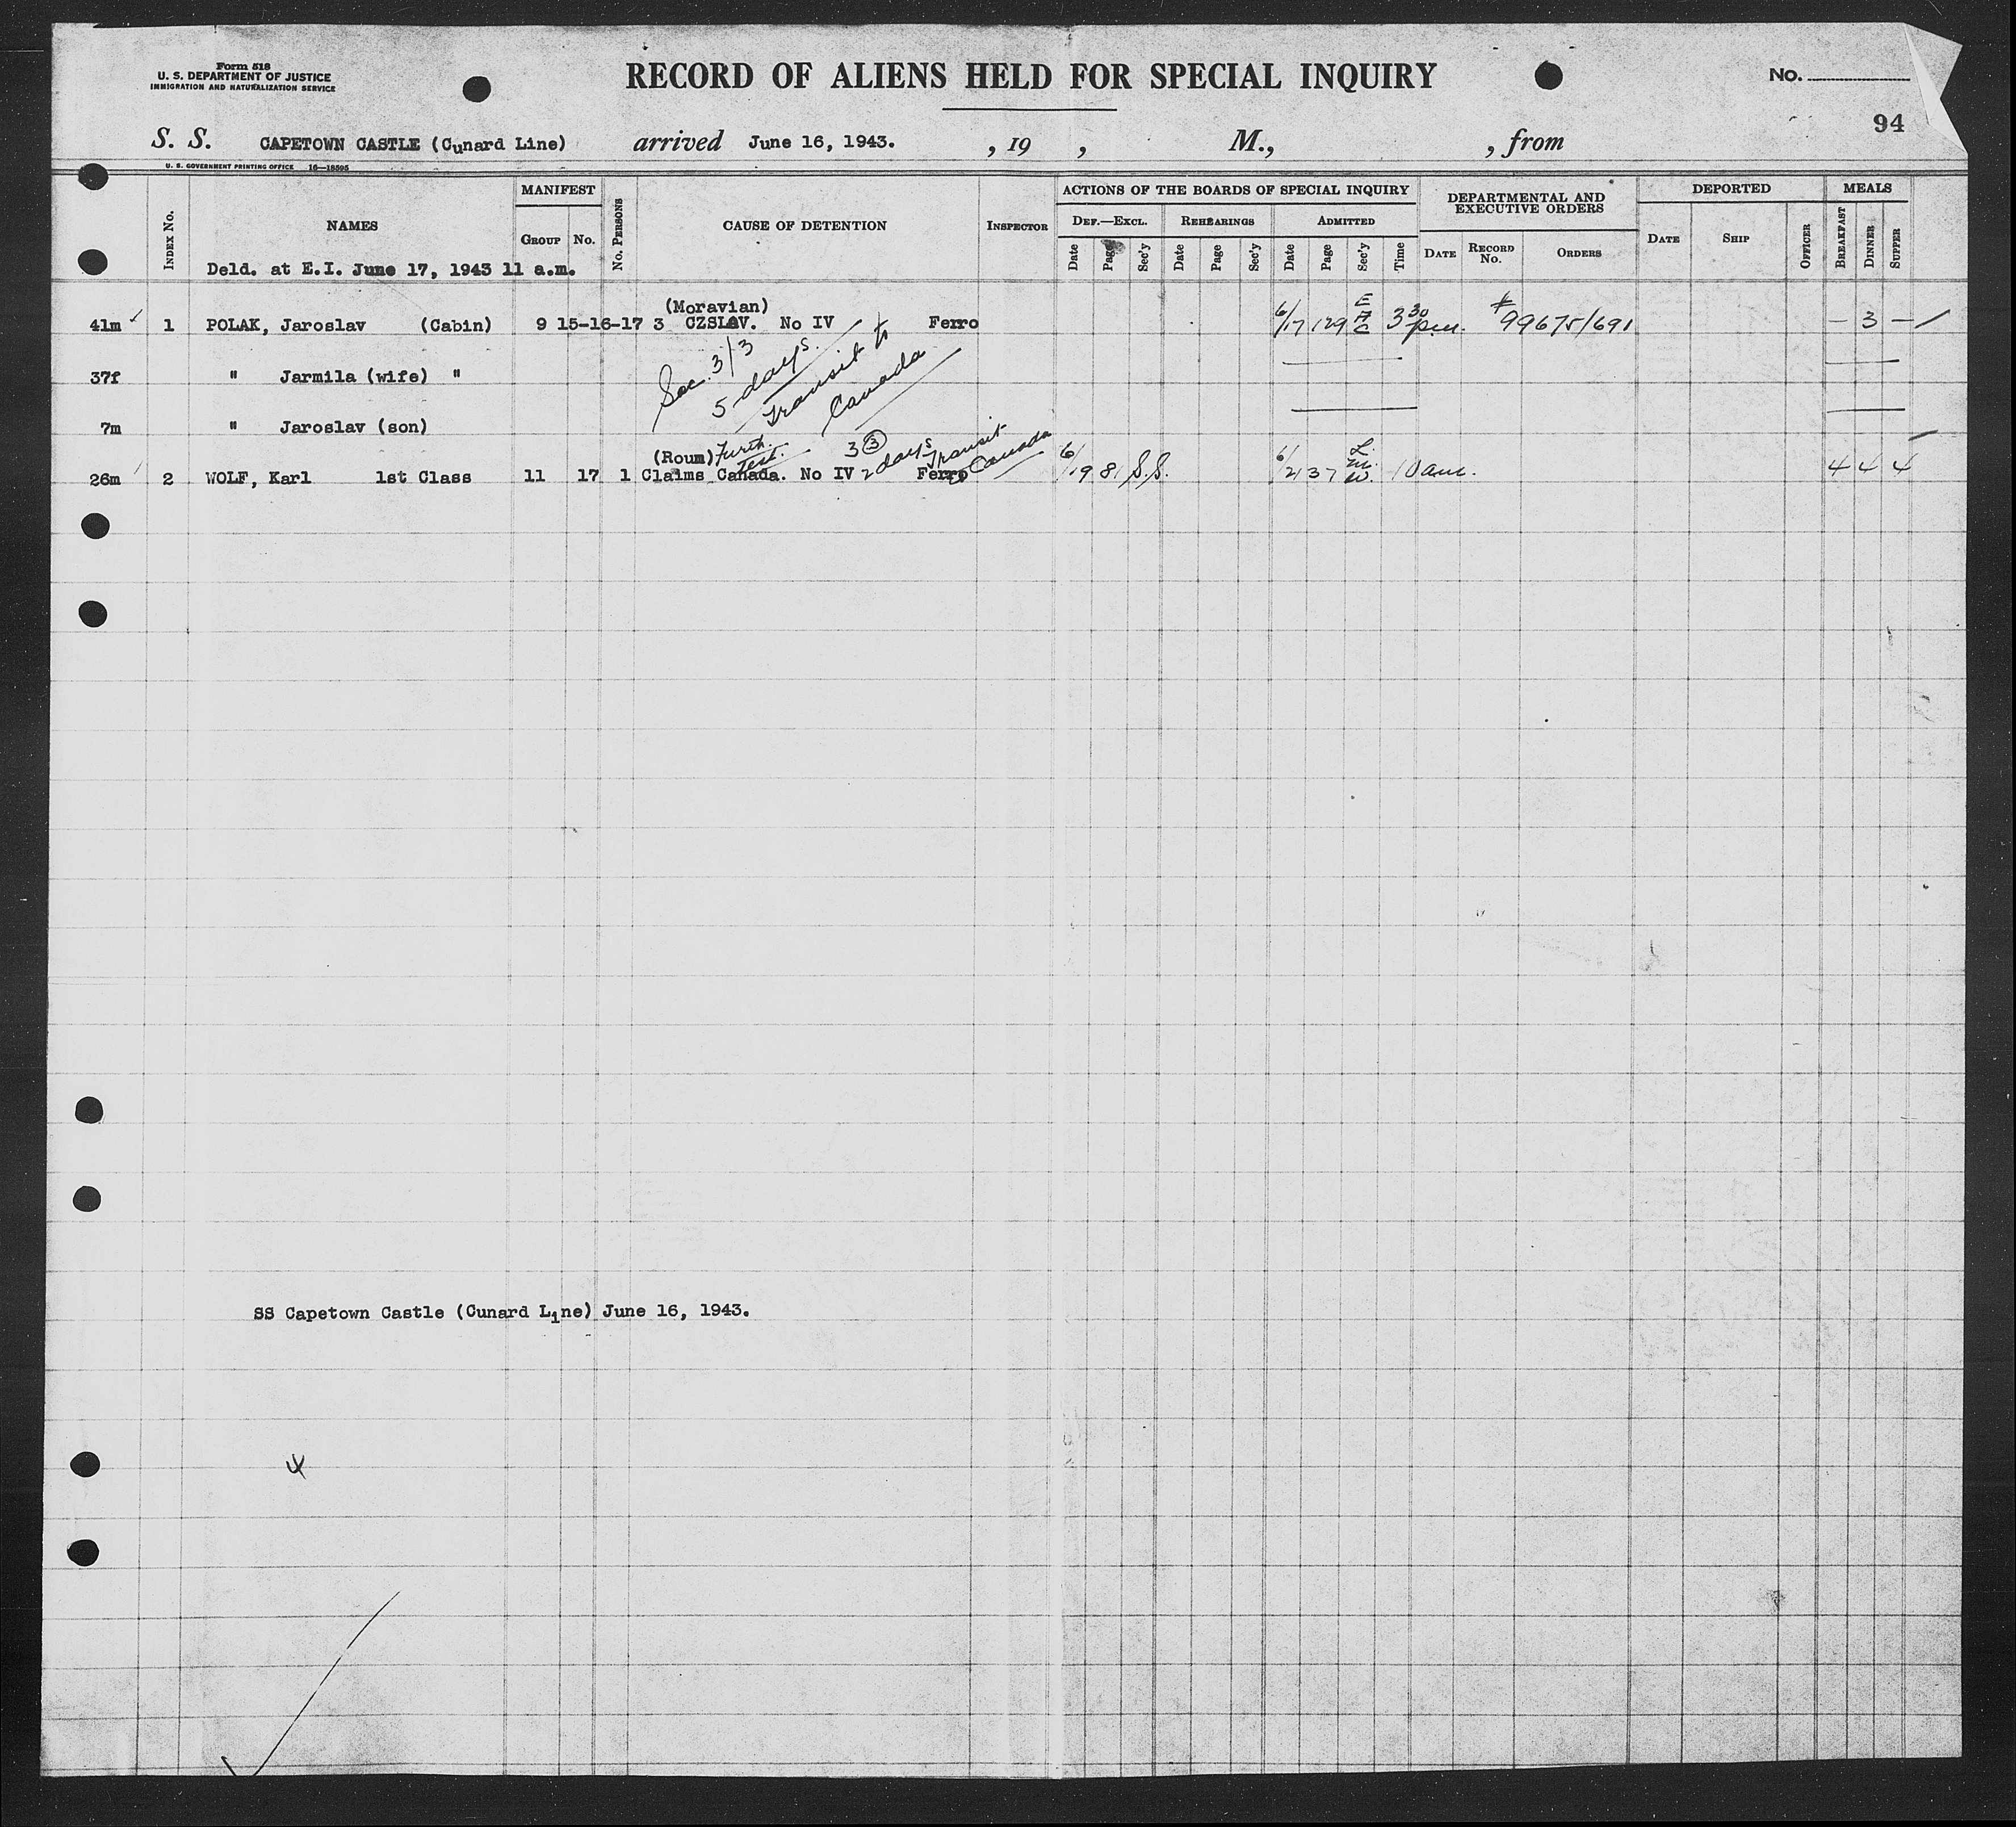 Form 518
U. S. DEPARTMENT OF JUSTICE
IMMIGRATION AND NATURALIZATION SERVICE
RECORD OF ALIENS HELD FOR SPECIAL INQUIRY
No.
94
S. S. CAPETOWN CASTLE (Cunard Line) arrived June 16, 1943. , 19 , M., , from
U. S. GOVERNMENT PRINTING OFFICE 16—18595
INDEX No. NAMES MANIFEST GROUP No. No. PERSONS CAUSE OF DETENTION INSPECTOR
ACTIONS OF THE BOARDS OF SPECIAL INQUIRY
DEF.—EXCL. REHEARINGS ADMITTED
Date Page Sec'y Date Page Sec'y Date Page Sec'y Time
DEPARTMENTAL AND EXECUTIVE ORDERS
DATE RECORD No. ORDERS
DEPORTED
DATE SHIP OFFICER
MEALS
BREAKFAST DINNER SUPPER
Deld. at E.I. June 17, 1943 11 a.m.
(Moravian)
41m 1 POLAK, Jaroslav (Cabin) 9 15-16-17 3 CZSLAV. No IV Ferro 6/17 129 E A C 3 30 pm. 99675/691 — 3 —
Sec. 3/3
5 days.
Transit to
Canada
37f " Jarmila (wife) "
7m " Jaroslav (son)
(Roum) Furth. Test. 3 (3) 2 days Transit to Canada
26m 2 WOLF, Karl 1st Class 11 17 1 Claims Canada. No IV Ferro 6/19 81 S.S. 6/21 37 L. M. W. 10 am. 4 4 4
SS Capetown Castle (Cunard Line) June 16, 1943.
4